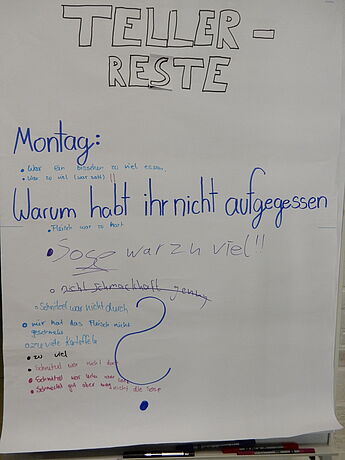 TELLER-
RESTE
Montag:
• War ein bisschen zu viel essen.
• War zu viel (war satt) !!
Warum habt ihr nicht aufgegessen
• Fleisch war zu hart
• Soße war zu viel!!
• nicht schmackhaft genug
• Schnitzel war nicht durch
• mir hat das Fleisch nicht
geschmeckt
• zu viele Kartoffeln
?
• zu viel
• Schnitzel war nicht
• Schnitzel war
• Schmeckt gut aber mag nicht die Soße